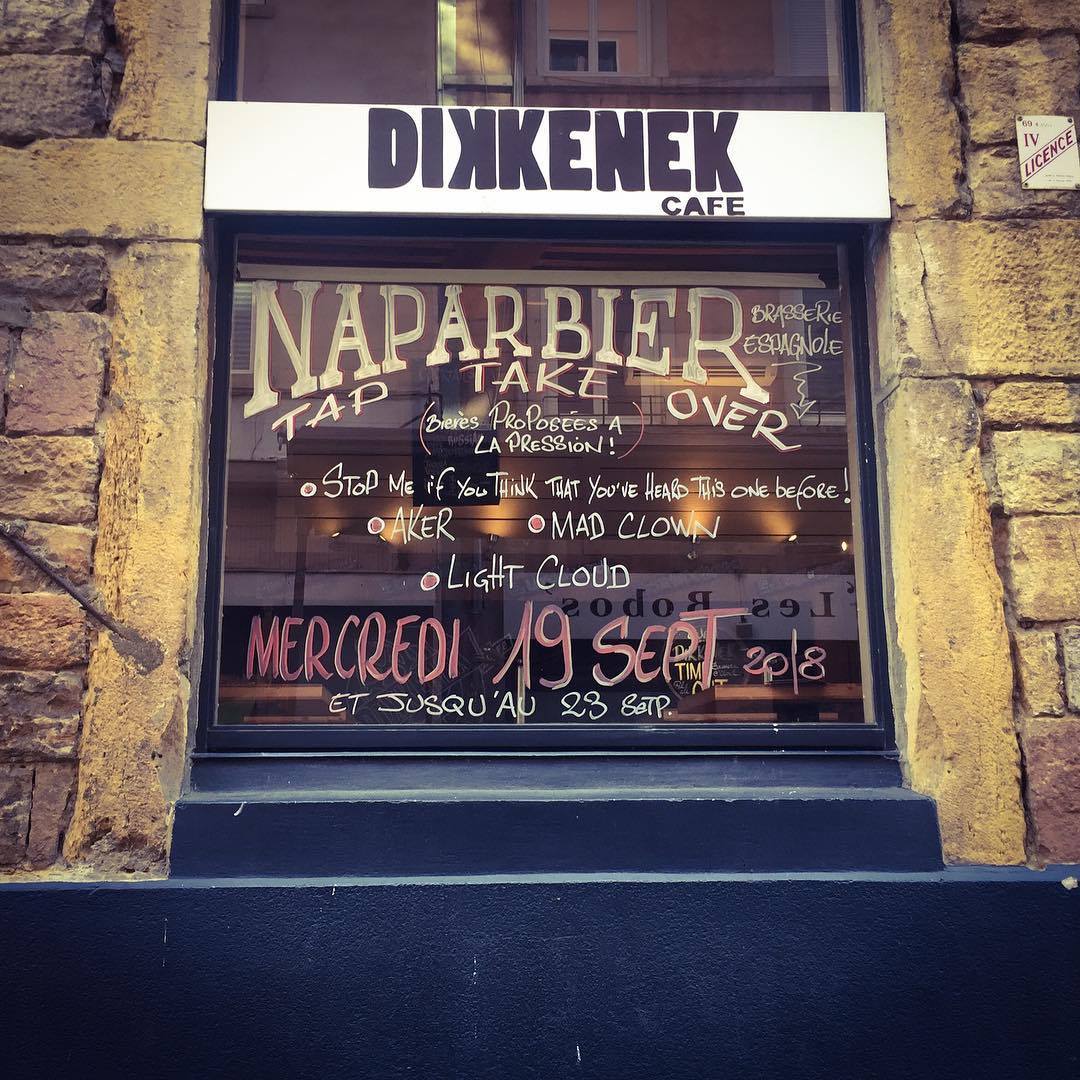 DIKKENEK
CAFE
69
IV
LICENCE
NAPARBIER
BRASSERIE
ESPAGNOLE
TAP TAKE OVER
(BIERÈS PROPOSÉES A
LA PRESSION!)
STOP ME if YOU THINK THAT YOU'VE HEARD THIS ONE BEFORE!
AKER
MAD CLOWN
LIGHT CLOUD
Les Bobos
MERCREDI 19 SEPT 2018
TIME
OUT
ET JUSQU'AU 23 SETP.